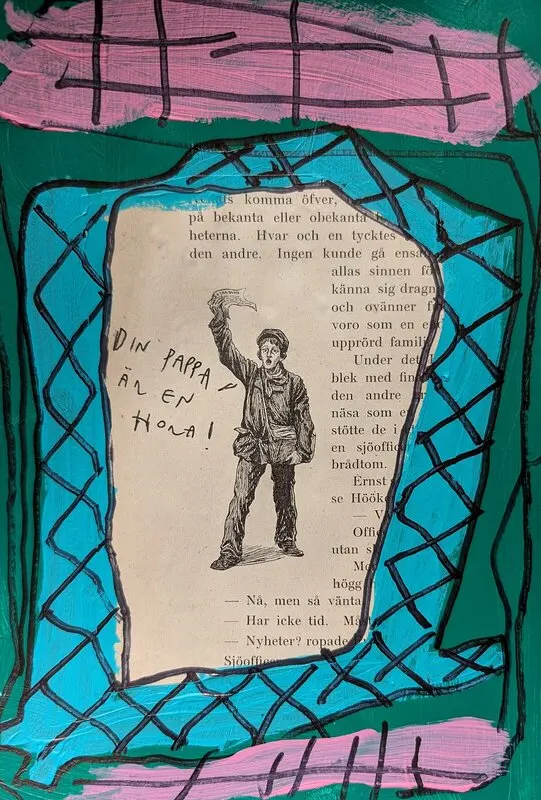 komma öfver,
på bekanta eller obekanta
heterna. Hvar och en tycktes
den andre. Ingen kunde gå ensa
allas sinnen fö
känna sig dragn
och ovänner f
voro som en e
upprörd famil
Under det
blek med fin
den andre
näsa som e
stötte de i
en sjöoffi
brådtom.
Ernst
se Höök
— V
Offi
utan s
Me
högg
— Nå, men så vänta
— Har icke tid. Mås
— Nyheter? ropade
Sjöoffice
DIN PAPPA
ÄR EN
HORA!